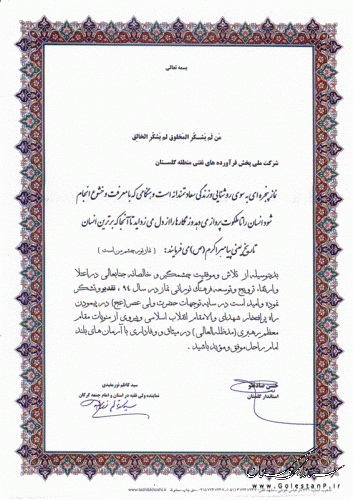 بسمه تعالی
مَن لَم یَشکُر المَخلوق لَم یَشکُر الخالِق
شرکت ملی پخش فرآورده های نفتی منطقه گلستان
نماز پنجره ای به سوی روشنایی و زندگی سعادتمندانه است و هنگامی که با معرفت و خشوع انجام
شود انسان را تا ملکوت پرواز می دهد و زنگارها را از دل می زداید تا آنجا که برترین انسان
تاریخ یعنی پیامبر اکرم (ص) می فرمایند: ( نماز نور چشم من است )
بدینوسیله از تلاش و موفقیت چشمگیر و خالصانه جنابعالی در اعتلا
و ارتقاء، ترویج و توسعه فرهنگ نورانی نماز در سال ۹۴، تقدیر و تشکر
نموده و امید است در سایه توجهات حضرت ولی عصر (عج) در پیمودن
راه پر افتخار شهدای والامقام انقلاب اسلامی و پیروی از منویات مقام
معظم رهبری (مدظله العالی) در میثاق و وفاداری با آرمان های بلند
امام راحل موفق و موید باشید.
حسن صادقلو
استاندار گلستان
سید کاظم نورمفیدی
نماینده ولی فقیه در استان و امام جمعه گرگان
www.GolestanP.ir